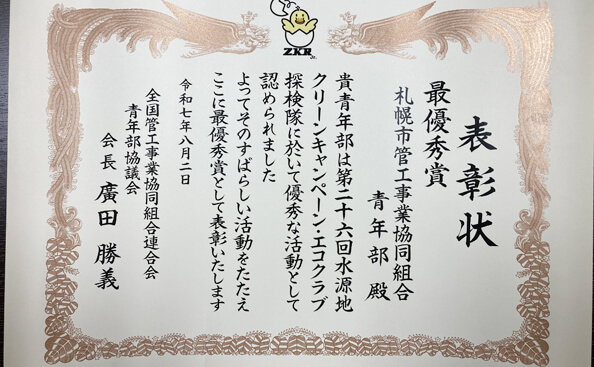 ZKR
Jr.
表彰状
最優秀賞
札幌市管工事業協同組合
青年部殿
貴青年部は第二十六回水源地
クリーンキャンペーン・エコクラブ
探検隊に於いて優秀な活動として
認められました
よってそのすばらしい活動をたたえ
ここに最優秀賞として表彰いたします
令和七年八月二日
全国管工事業協同組合連合会
青年部協議会
会長 廣田勝義